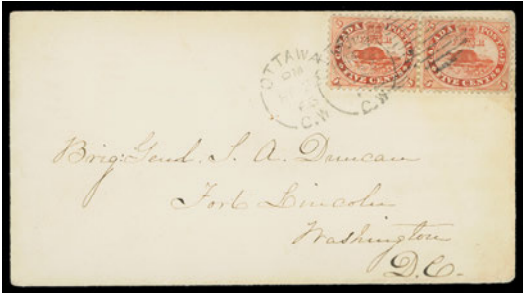 CANADA POSTAGE
FIVE CENTS
CANADA POSTAGE
FIVE CENTS
OTTAWA
PM
C.W
C.W
Brig: Genl. S. A. Duncan
Fort Lincoln
Washington
D.C.